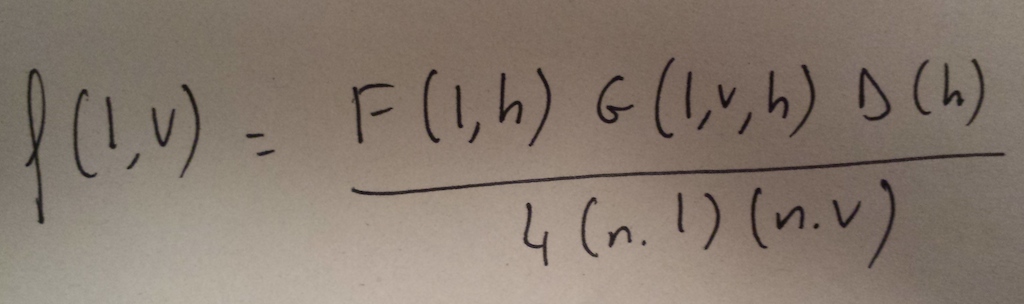 f(l,v) = F(l,h) G(l,v,h) D(h)
4(n.l)(n.v)